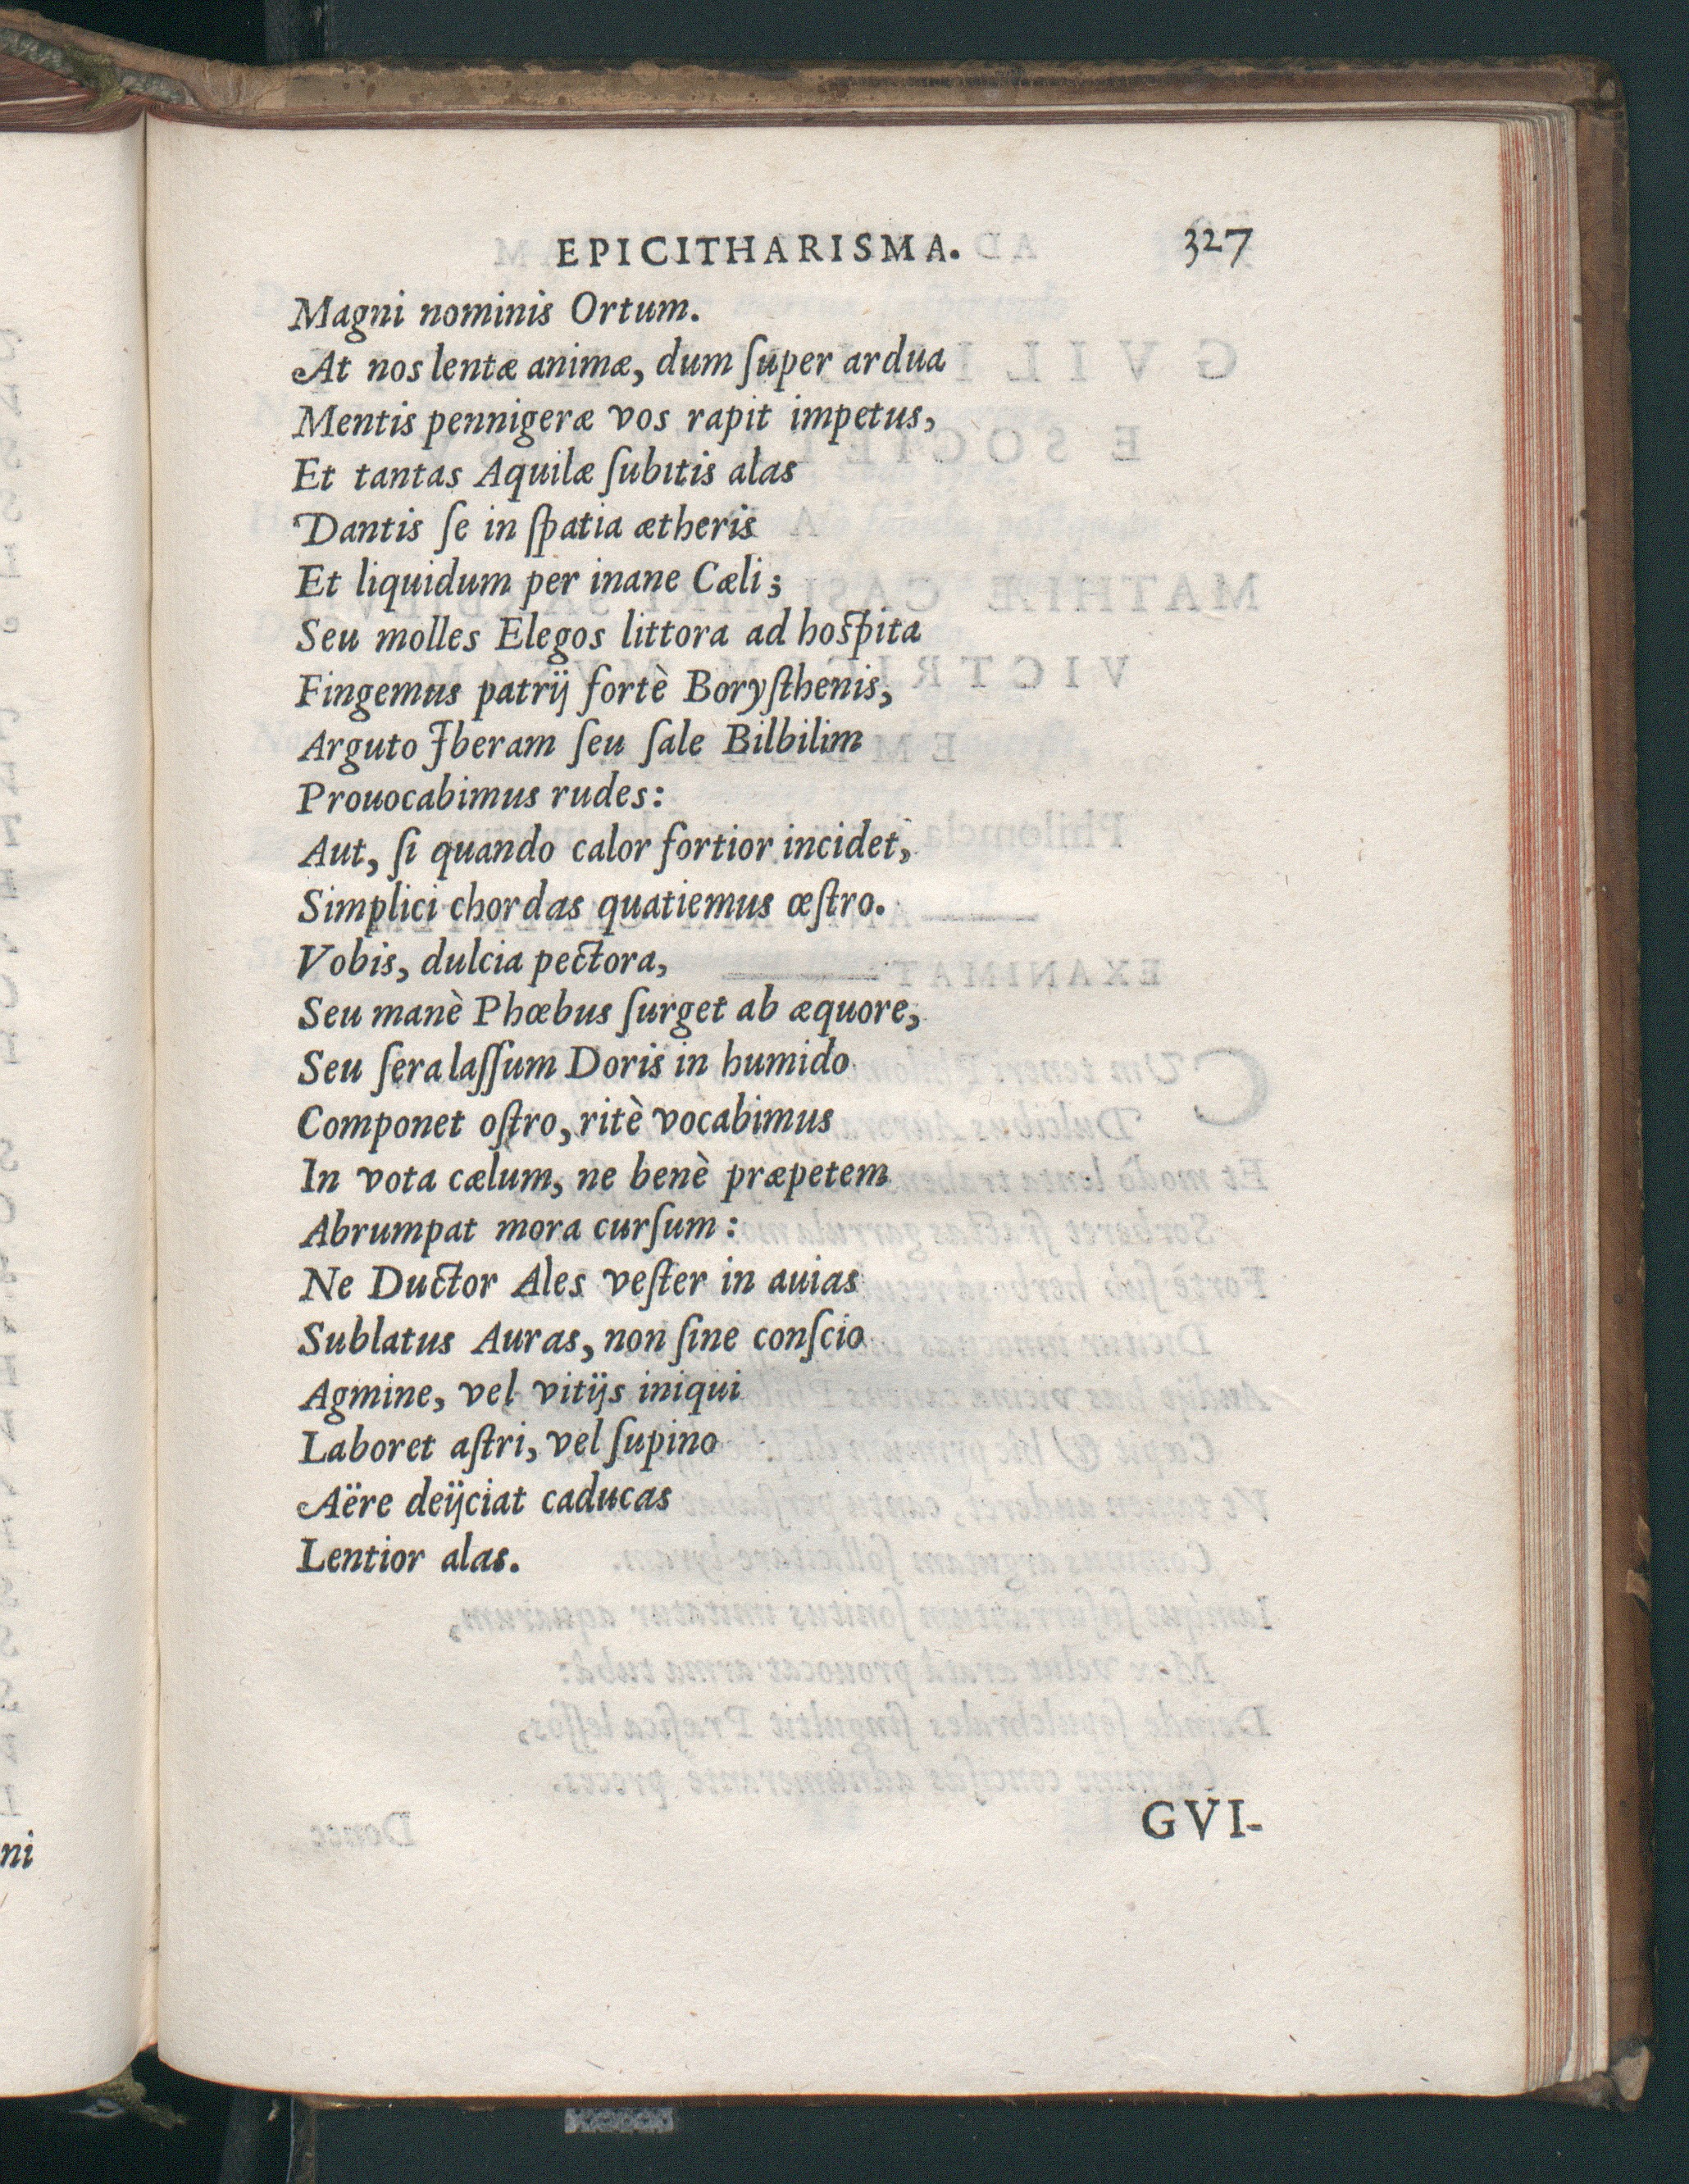 EPICITHARISMA. 327
Magni nominis Ortum.
At nos lentæ animæ, dum ſuper ardua
Mentis pennigeræ vos rapit impetus,
Et tantas Aquilæ ſubitis alas
Dantis ſe in ſpatia ætheris
Et liquidum per inane Cæli;
Seu molles Elegos littora ad hoſpita
Fingemus patrij fortè Boryſthenis,
Arguto Iberam ſeu ſale Bilbilim
Prouocabimus rudes:
Aut, ſi quando calor fortior incidet,
Simplici chordas quatiemus œſtro.
Vobis, dulcia pectora,
Seu manè Phœbus ſurget ab æquore,
Seu ſera laſſum Doris in humido
Componet oſtro, ritè vocabimus
In vota cælum, ne benè præpetem
Abrumpat mora curſum:
Ne Ductor Ales veſter in auias
Sublatus Auras, non ſine conſcio
Agmine, vel vitijs iniqui
Laboret aſtri, vel ſupino
Aëre deijciat caducas
Lentior alas.
GVI-
ni